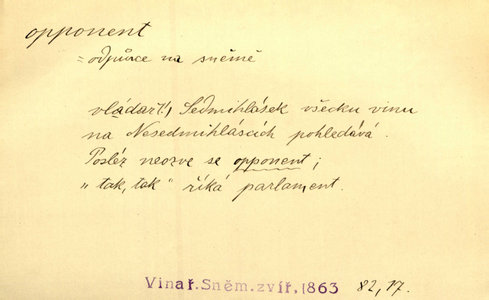 opponent
= odpůrce na sněmě
vládař!, Sedmihlásek všecku vinu
na Nesedmihláscích pohledává.
Posléz neozve se opponent;
„tak, tak" říká parlament.
Vinař. Sněm. zvíř, 1863 82, 17.